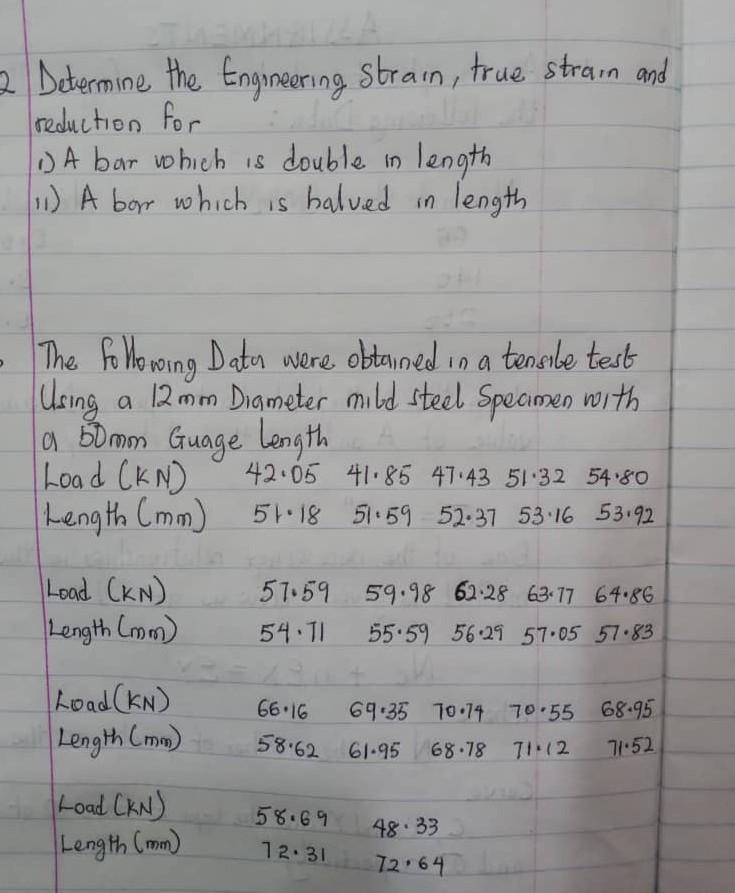 2 Determine the Engineering Strain, true strain and
reduction for
i) A bar which is double in length
ii) A bar which is halved in length
The following Data were obtained in a tensile test
Using a 12mm Diameter mild steel Specimen with
a 50mm Guage Length
Load (KN) 42.05 41.85 47.43 51.32 54.80
Length (mm) 51.18 51.59 52.37 53.16 53.92
Load (KN) 57.59 59.98 62.28 63.77 64.86
Length (mm) 54.71 55.59 56.29 57.05 57.83
Load (KN) 66.16 69.35 70.74 70.55 68.95
Length (mm) 58.62 61.95 68.78 71.12 71.52
Load (KN) 58.69 48.33
Length (mm) 72.31 72.64